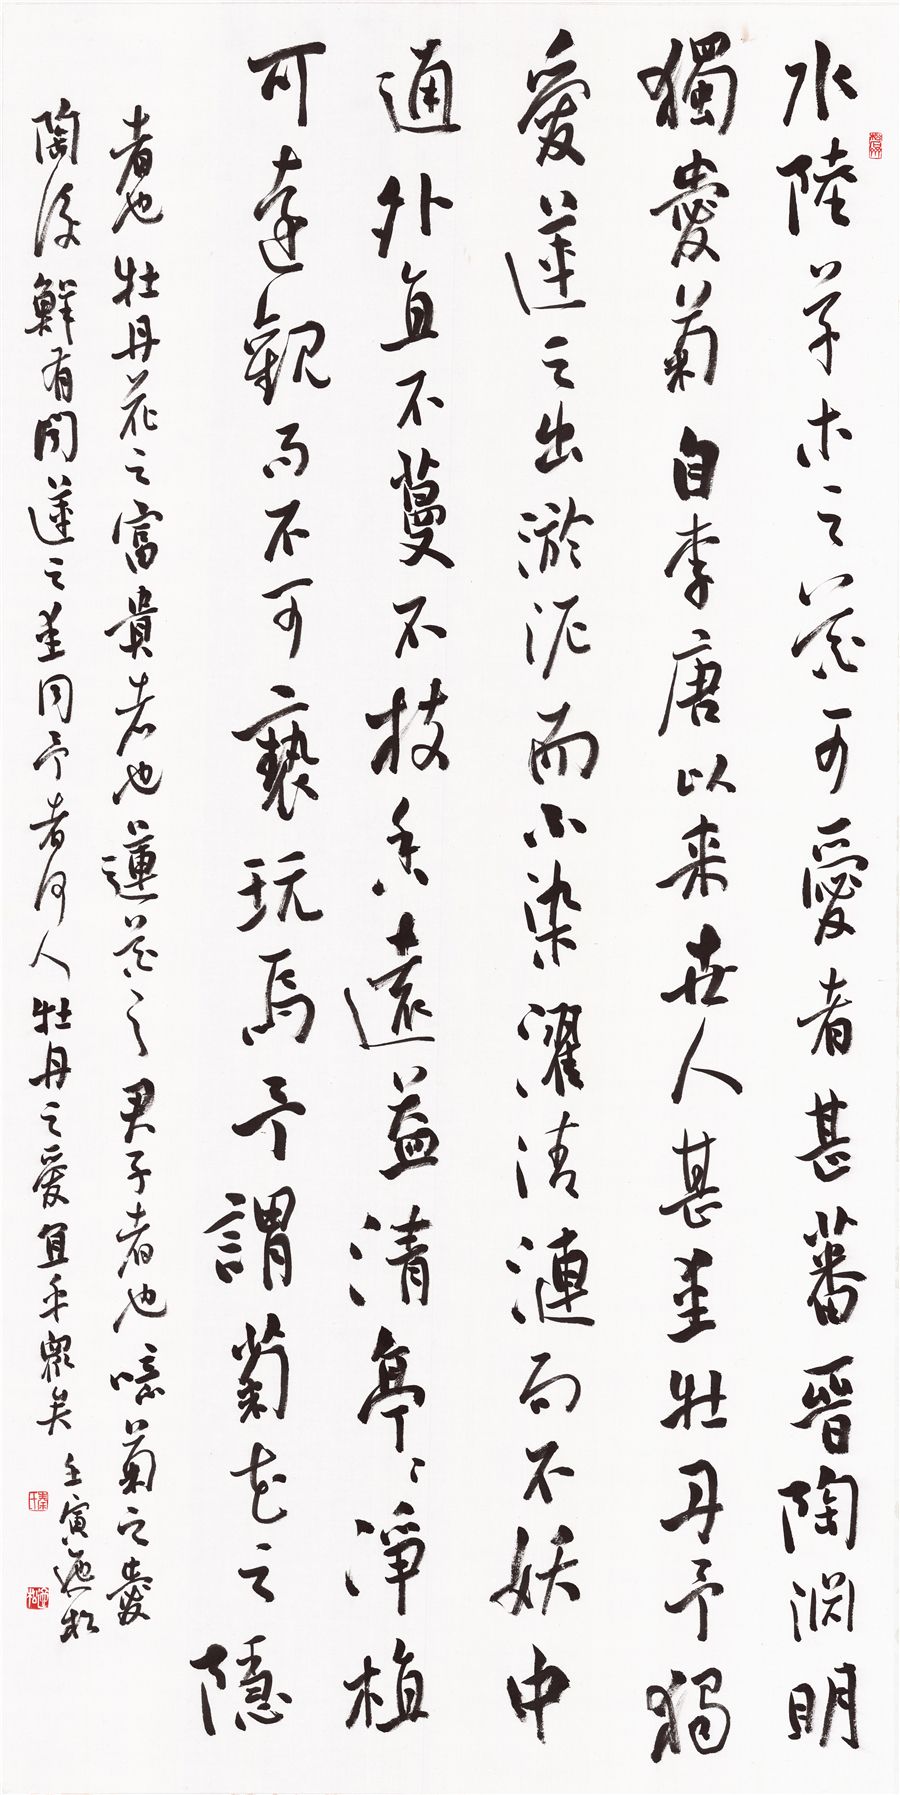 水陸草木之花可愛者甚蕃晉陶淵明
獨愛菊自李唐以来世人甚愛牡丹予獨
愛蓮之出淤泥而不染濯清漣而不妖中
通外直不蔓不枝香遠益清亭〻淨植
可遠觀而不可褻玩焉予謂菊花之隱
者也牡丹花之富貴者也蓮花之君子者也噫菊之愛
陶後鮮有聞蓮之愛同予者何人牡丹之愛宜乎眾矣 壬寅逸松